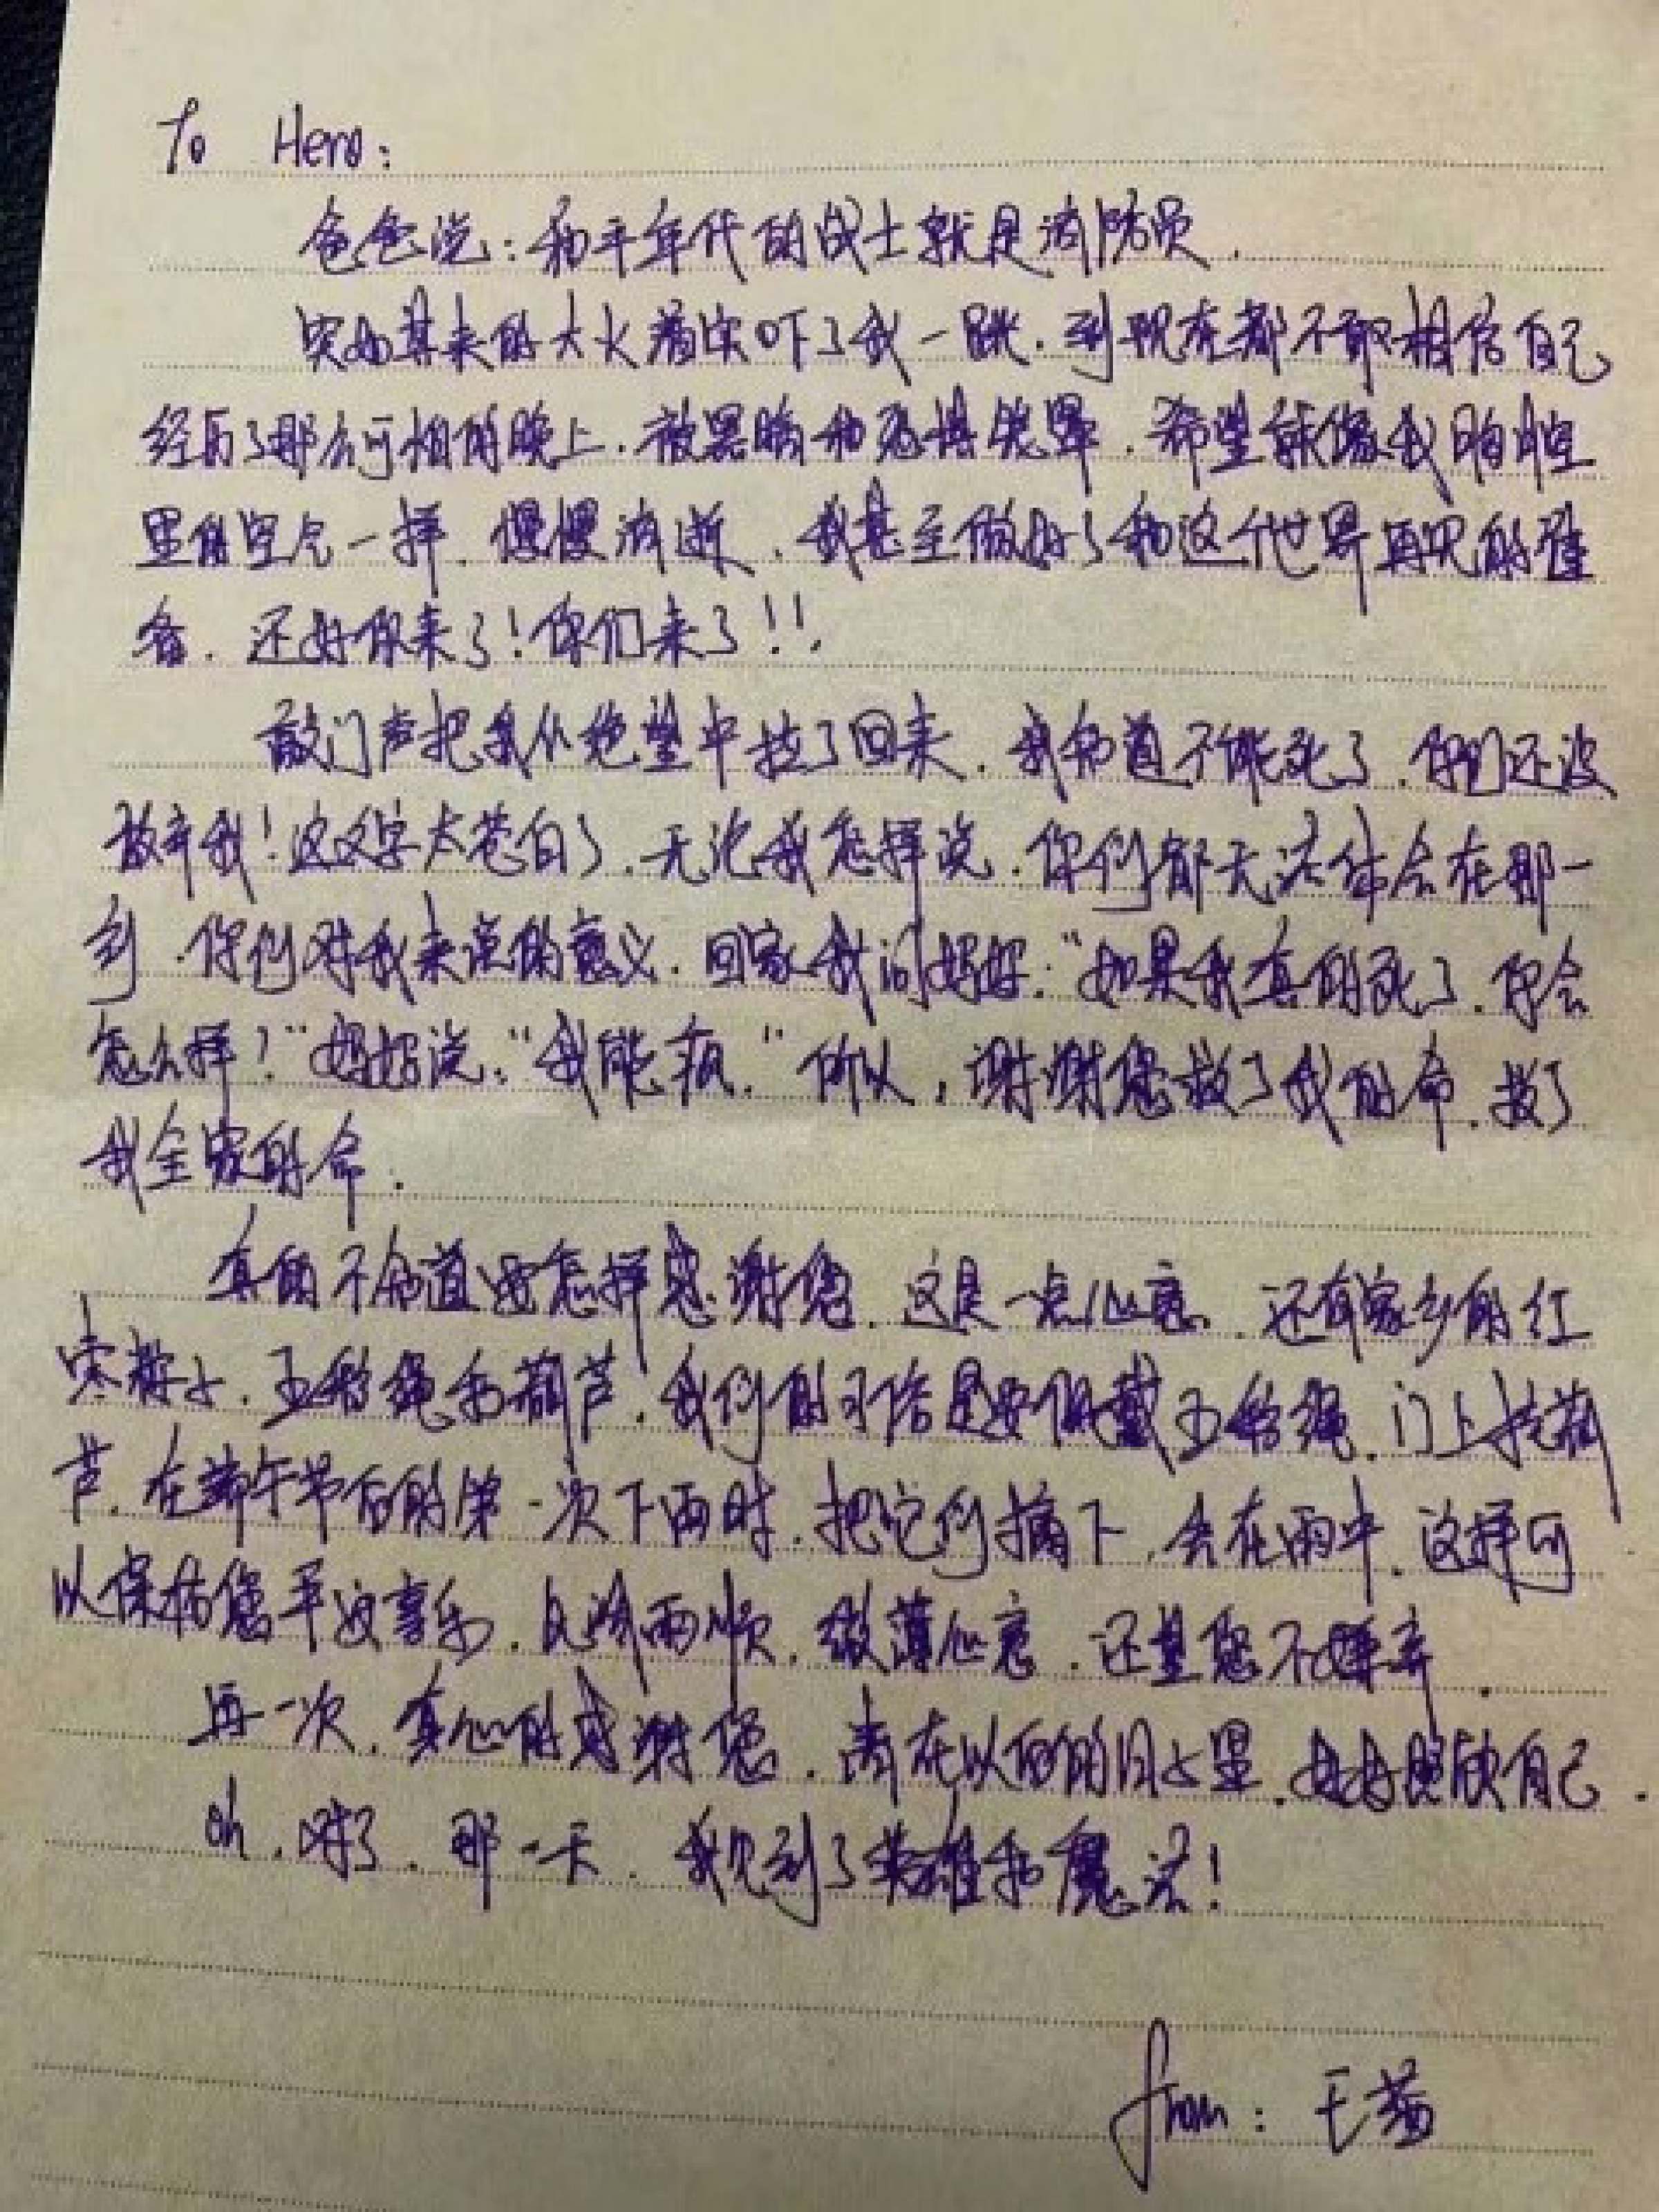 To Hero:
爸爸说:和平年代的战士就是消防员.
突如其来的大火着实吓了我一跳.到现在都不敢相信自己
经历了那么可怕的晚上.被黑暗和恐惧笼罩.希望就像我胸腔
里的空气一样.慢慢消逝.我甚至做好了和这个世界再见的准
备.还好你来了!你们来了!!.
敲门声把我从绝望中拉了回来.我知道不能死了.你们还没
放弃我!这文字太苍白了.无论我怎样说.你们都无法体会在那一
刻.你们对我来说的意义.回家我问妈妈:“如果我真的死了.你会
怎么样?”妈妈说:“我能疯.”所以,谢谢您救了我的命.救了
我全家的命.
真的不知道要怎样感谢您.这是一点心意.还有家乡的红
寒粽子.五彩绳和葫芦.我们的习俗是要佩戴五彩绳.门上挂葫
芦.在端午节后的第一次下雨时.把它们摘下.舍在雨中.这样可
以保佑您平安喜乐.风调雨顺.微薄心意.还望您不嫌弃.
再一次.真心的感谢您.请在以后的日子里.好好照顾自己.
oh.对了.那一天.我见到了英雄和魔法!
from: 王